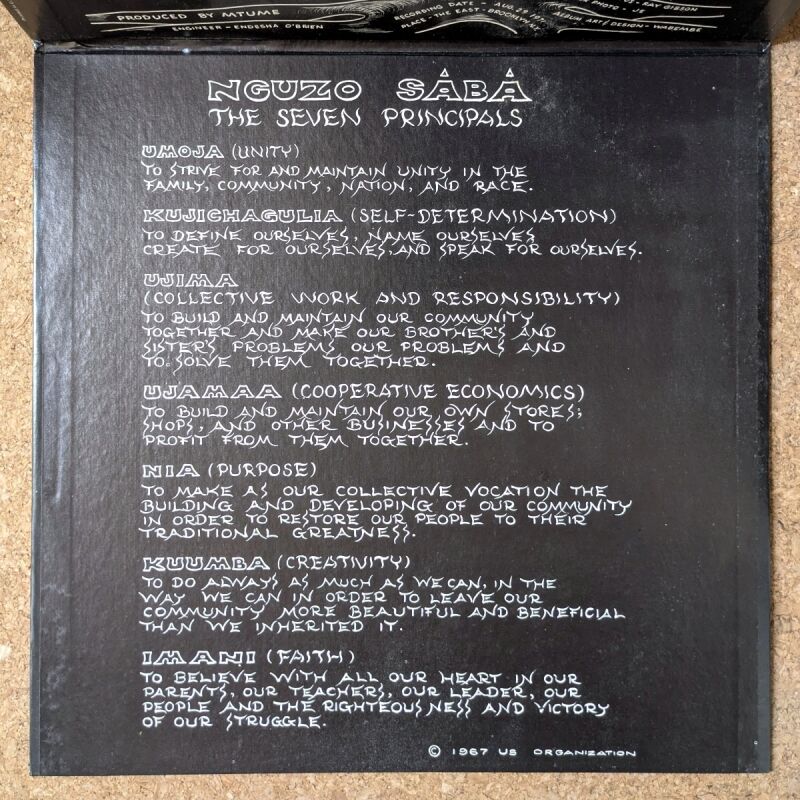 PRODUCED BY MTUME
ENGINEER - ENDESHA O'BRIEN
RECORDING DATE - AUG. 29
PLACE - THE EAST - BROOKLYN
RAY GIBSON
PHOTO - JE
ALBUM ART/DESIGN - WABEMBE
NGUZO SÁBÁ
THE SEVEN PRINCIPALS
UMOJA (UNITY)
TO STRIVE FOR AND MAINTAIN UNITY IN THE
FAMILY, COMMUNITY, NATION, AND RACE.
KUJICHAGULIA (SELF-DETERMINATION)
TO DEFINE OURSELVES, NAME OURSELVES
CREATE FOR OURSELVES, AND SPEAK FOR OURSELVES.
UJIMA
(COLLECTIVE WORK AND RESPONSIBILITY)
TO BUILD AND MAINTAIN OUR COMMUNITY
TOGETHER AND MAKE OUR BROTHER'S AND
SISTER'S PROBLEMS OUR PROBLEMS AND
TO SOLVE THEM TOGETHER.
UJAMAA (COOPERATIVE ECONOMICS)
TO BUILD AND MAINTAIN OUR OWN STORES;
SHOPS, AND OTHER BUSINESSES AND TO
PROFIT FROM THEM TOGETHER.
NIA (PURPOSE)
TO MAKE AS OUR COLLECTIVE VOCATION THE
BUILDING AND DEVELOPING OF OUR COMMUNITY
IN ORDER TO RESTORE OUR PEOPLE TO THEIR
TRADITIONAL GREATNESS.
KUUMBA (CREATIVITY)
TO DO ALWAYS AS MUCH AS WE CAN, IN THE
WAY WE CAN IN ORDER TO LEAVE OUR
COMMUNITY MORE BEAUTIFUL AND BENEFICIAL
THAN WE INHERITED IT.
IMANI (FAITH)
TO BELIEVE WITH ALL OUR HEART IN OUR
PARENTS, OUR TEACHERS, OUR LEADER, OUR
PEOPLE AND THE RIGHTEOUSNESS AND VICTORY
OF OUR STRUGGLE.
© 1967 US ORGANIZATION